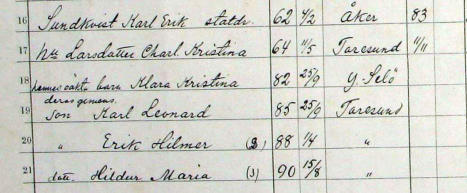 16 Sundkvist Karl Erik statdr. 62 4/2 Åker 83
17 Hu Larsdatter Charl Kristina 64 11/5 Toresund 11/11
18 hennes oäkta barn Klara Kristina 82 25/9 Y. Selö
deras gemens.
19 Son Karl Leonard 85 25/9 Toresund
20 " Erik Hilmer (3) 88 1/4 "
21 dott. Hildur Maria (3) 90 15/8 "